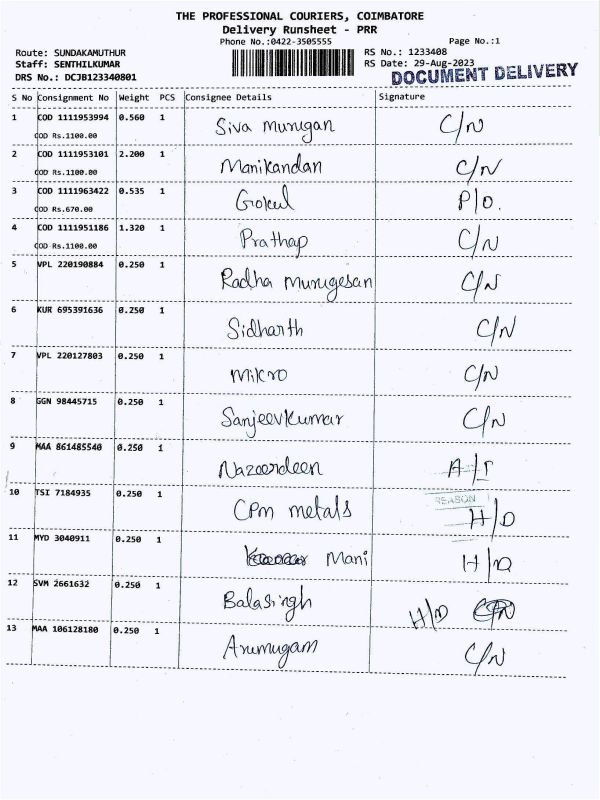 THE PROFESSIONAL COURIERS, COIMBATORE
Delivery Runsheet - PRR
Phone No.:0422-3505555 Page No.:1
Route: SUNDAKAMUTHUR RS No.: 1233408
Staff: SENTHILKUMAR RS Date: 29-Aug-2023
DRS No.: DCJB123340801 DOCUMENT DELIVERY
S No Consignment No Weight PCS Consignee Details Signature
1 COD 1111953994 0.560 1 Siva Murugan C/N
COD Rs.1100.00
2 COD 1111953101 2.200 1 Manikandan C/N
COD Rs.1100.00
3 COD 1111963422 0.535 1 Gokul P/O.
COD Rs.670.00
4 COD 1111951186 1.320 1 Prathap C/N
COD Rs.1100.00
5 VPL 220190884 0.250 1 Radha Murugesan C/N
6 KUR 695391636 0.250 1 Sidharth C/N
7 VPL 220127803 0.250 1 Mikro C/N
8 GGN 98445715 0.250 1 Sanjeevkumar C/N
9 MAA 861485540 0.250 1 Nazeerdeen A/I
REASON
10 TSI 7184935 0.250 1 CPM metals H/D
11 MYD 3040911 0.250 1 Mani H/D
12 SVM 2661632 0.250 1 Balasingh H/D
13 MAA 106128180 0.250 1 Arumugam C/N